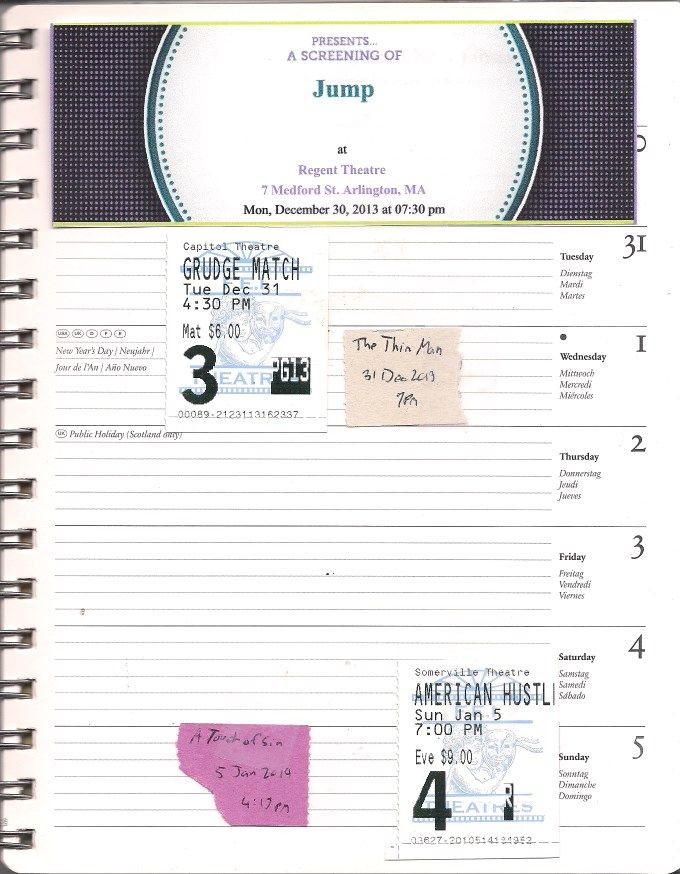 PRESENTS...
A SCREENING OF
Jump
at
Regent Theatre
7 Medford St. Arlington, MA
Mon, December 30, 2013 at 07:30 pm
Tuesday 31
Dienstag
Mardi
Martes
Capitol Theatre
GRUDGE MATCH
Tue Dec 31
4:30 PM
Mat $6.00
3 PG13
THEATR
00089-2123113162337
The Thin Man
31 Dec 2013
7pm
USA UK D F E
New Year's Day | Neujahr |
Jour de l'An | Año Nuevo
Wednesday 1
Mittwoch
Mercredi
Miércoles
UK Public Holiday (Scotland only)
Thursday 2
Donnerstag
Jeudi
Jueves
Friday 3
Freitag
Vendredi
Viernes
Saturday 4
Samstag
Samedi
Sábado
Somerville Theatre
AMERICAN HUSTL
Sun Jan 5
7:00 PM
Eve $9.00
4 R
THEATRES
A Touch of Sin
5 Jan 2014
4:15pm
Sunday 5
Sonntag
Dimanche
Domingo